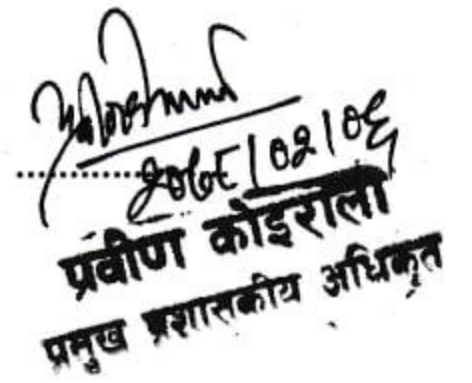 २०७८|०२|०६
प्रवीण कोइराला
प्रमुख प्रशासकीय अधिकृत